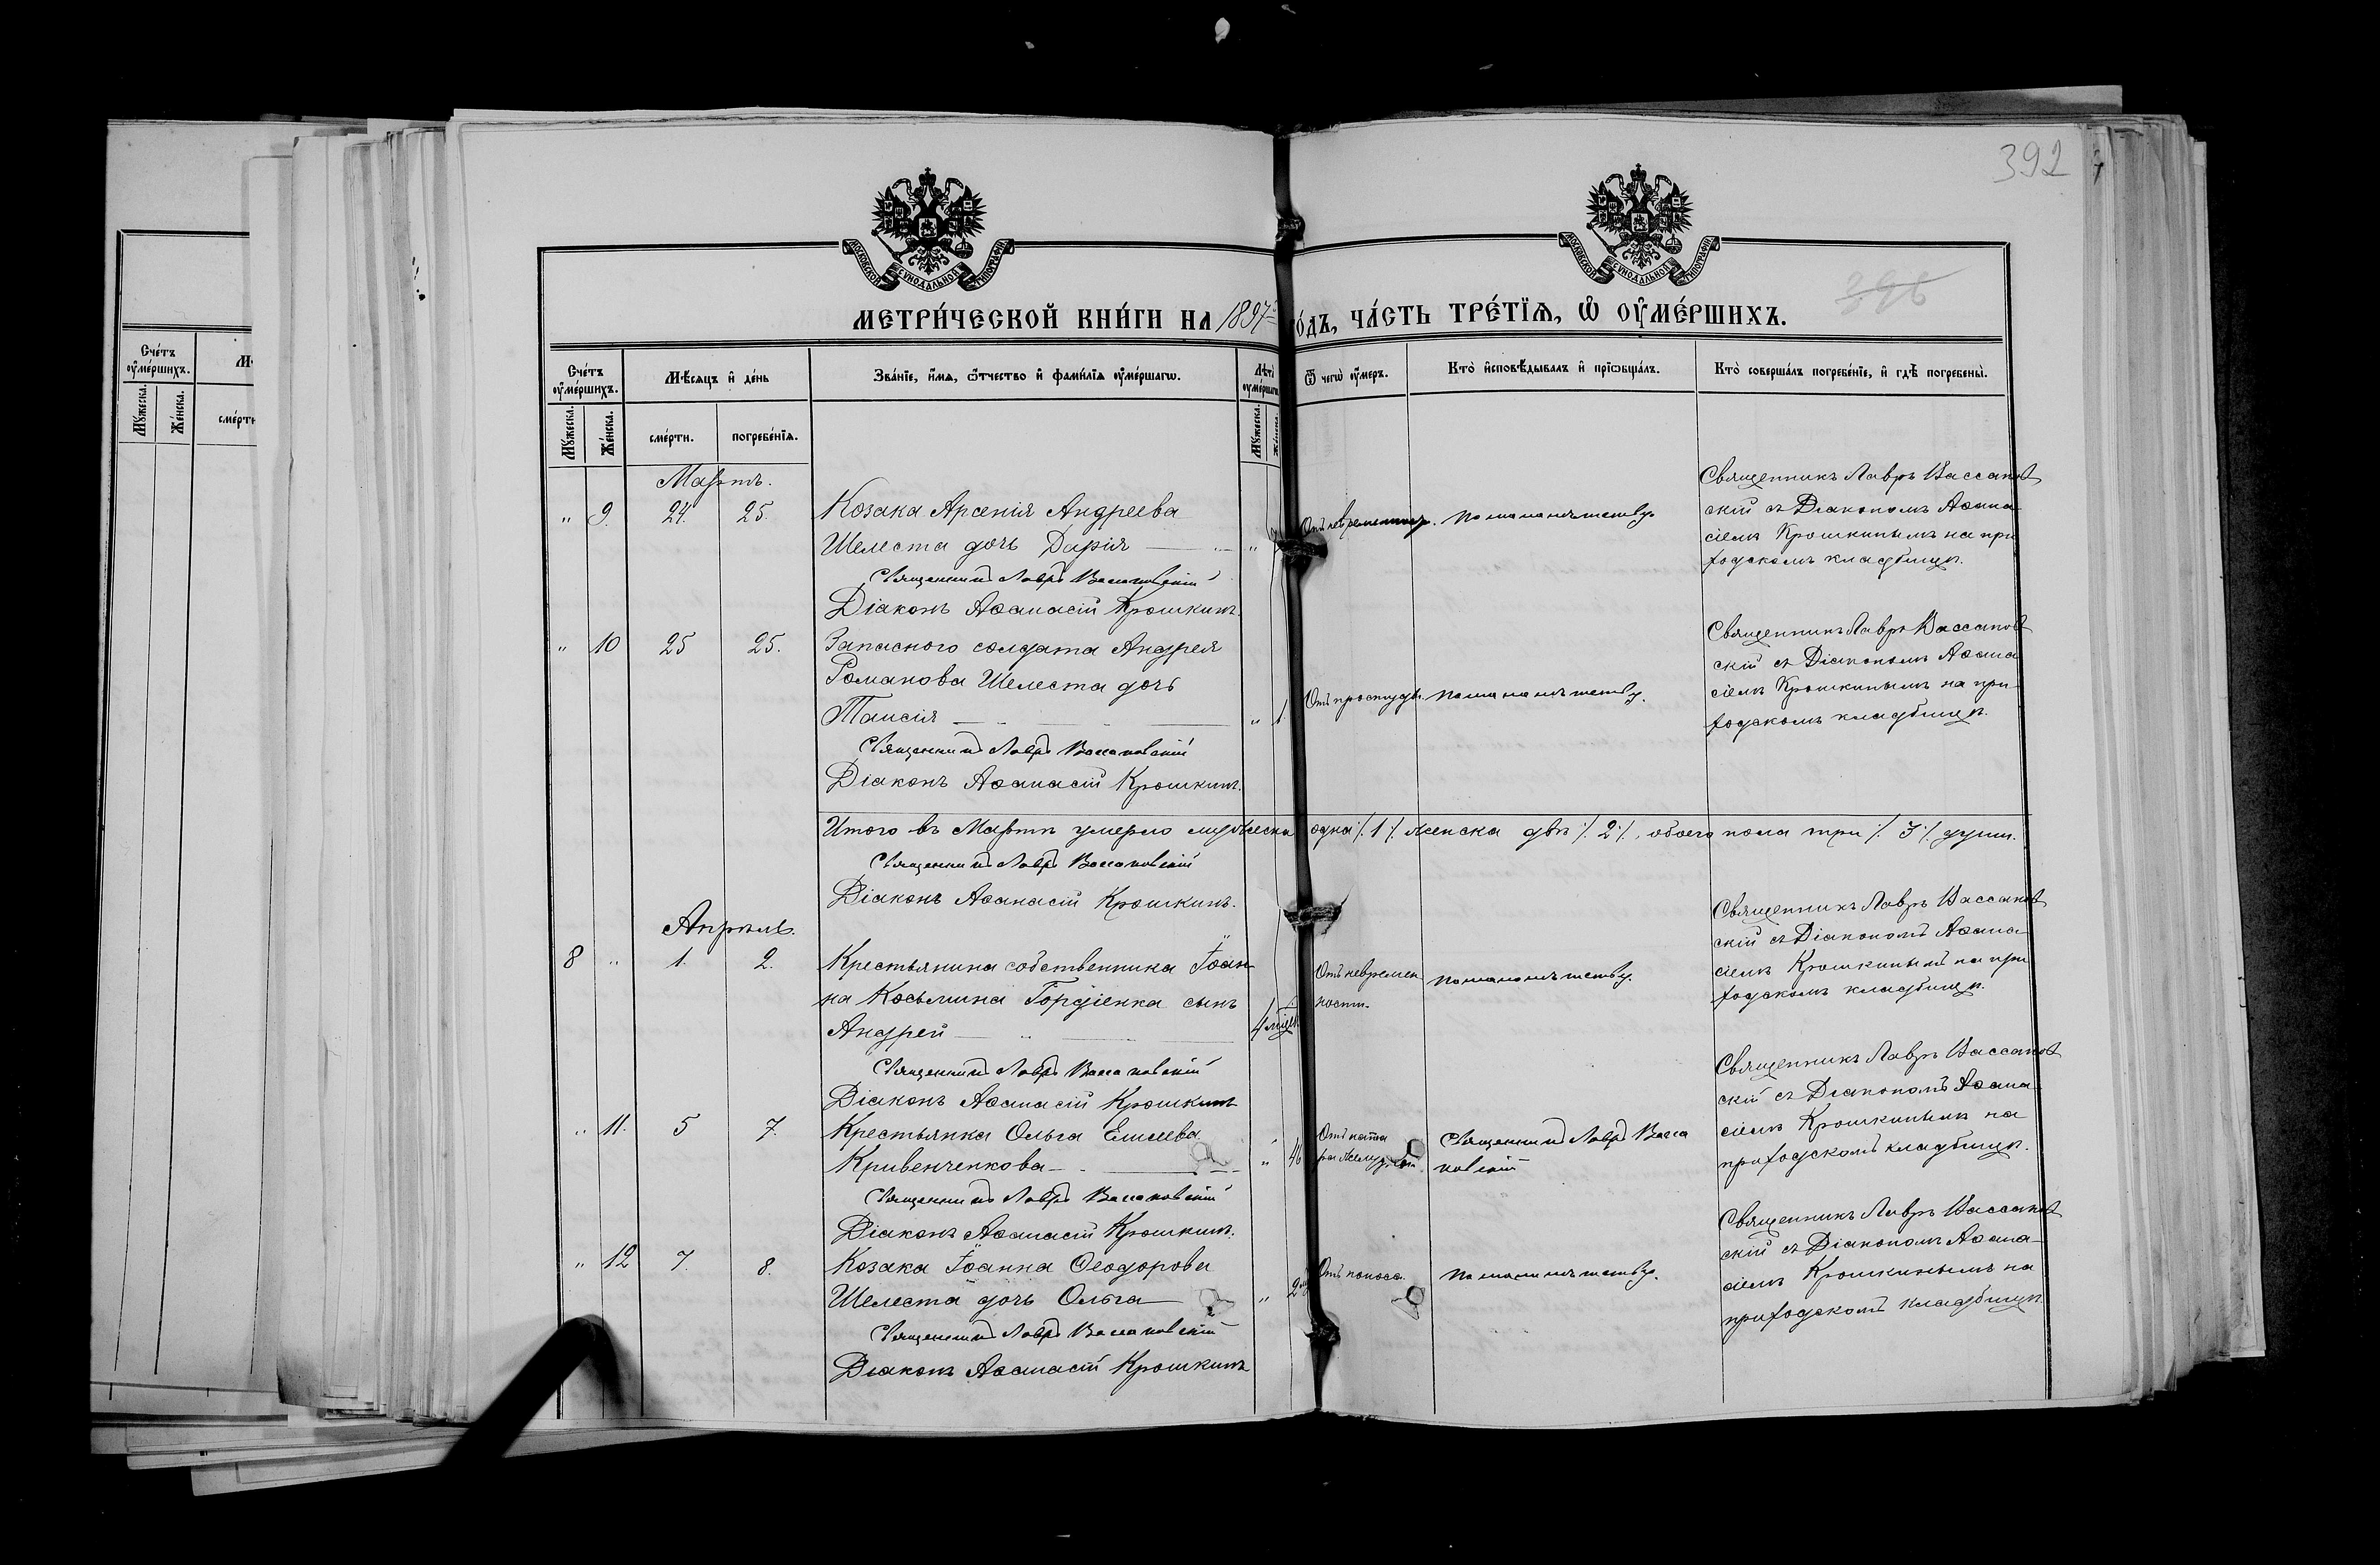 392
396
МОСКОВСКОЙ СѴНОДАЛЬНОЙ ТИПОГРАФІИ
МОСКОВСКОЙ СѴНОДАЛЬНОЙ ТИПОГРАФІИ
МЕТРИ́ЧЕСКОЙ КНИ́ГИ НА 1897 го́дъ, ЧА́СТЬ ТРЕ́ТЇѦ, Ѡ҆ ОУ҆МЕ́РШИХЪ.
Сче́тъ оу҆ме́ршихъ.
Мꙋ́жеска.
Же́нска.
Мѣ́сѧцъ и҆ де́нь
сме́рти.
погребе́нїѧ.
Зва́нїе, и҆́мѧ, ѻ҆́тчество и҆ фами́лїѧ оу҆ме́ршагѡ.
Лѣ́та оу҆ме́ршагѡ
Мꙋ́жеска.
Же́нска.
Ѿ чегѡ̀ оу҆́меръ.
Кто̀ и҆сповѣ́дывалъ и҆ прїѡбща́лъ.
Кто̀ соверша́лъ погребе́нїе, и҆ гдѣ̀ погребены̀.
Сче́тъ
оу҆ме́ршихъ.
Мꙋ́жеска.
Же́нска.
сме́рти
Мартъ.
" 9. 24. 25. Козака Арсенія Андреева
Шелеста дочь Дарія "
Священникъ Лавръ Вассановскій
Діаконъ Аѳанасій Крошкинъ.
По малолѣтству
Священникъ Лавръ Вассановскій съ Діакономъ Аѳана
сіемъ Крошкинымъ на при
ходскомъ кладбищѣ.
" 10 25 25. Запасного солдата Андрея
Романова Шелеста дочь
Таисія " 1
Священникъ Лавръ Вассановскій
Діаконъ Аѳанасій Крошкинъ.
Отъ простуды. По малолѣтству.
Священникъ Лавръ Вассанов
скій съ Діакономъ Аѳана
сіемъ Крошкинымъ на при
ходскомъ кладбищѣ.
Итого въ Мартѣ умерло мужеска одна /.1/. женска двѣ /.2/., обоего пола три /.3/. души.
Священникъ Лавръ Вассановскій
Діаконъ Аѳанасій Крошкинъ.
Апрѣль.
8 " 1. 2. Крестьянина собственника Іоан-
на Косьмина Гордіенка сынъ
Андрей 4 мѣс.
Священникъ Лавръ Вассановскій
Діаконъ Аѳанасій Крошкинъ
Отъ невремен
ности.
По малолѣтству.
Священникъ Лавръ Вассанов
скій съ Діакономъ Аѳана
сіемъ Крошкинымъ на при
ходскомъ кладбищѣ.
" 11. 5 7. Крестьянка Ольга
Кривенченкова " 46
Священникъ Лавръ Вассановскій
Діаконъ Аѳанасій Крошкинъ.
Отъ ката
ра
Священникъ Лавръ Васса
новскій
Священникъ Лавръ Вассанов
скій съ Діакономъ Аѳана
сіемъ Крошкинымъ на
приходскомъ кладбищѣ.
" 12 7. 8. Козака Іоанна Ѳеодорова
Шелеста дочь Ольга " 2
Священникъ Лавръ Вассановскій
Діаконъ Аѳанасій Крошкинъ
Отъ поноса.
По малолѣтству.
Священникъ Лавръ Вассанов
скій съ Діакономъ Аѳана-
сіемъ Крошкинымъ на
приходскомъ кладбищѣ